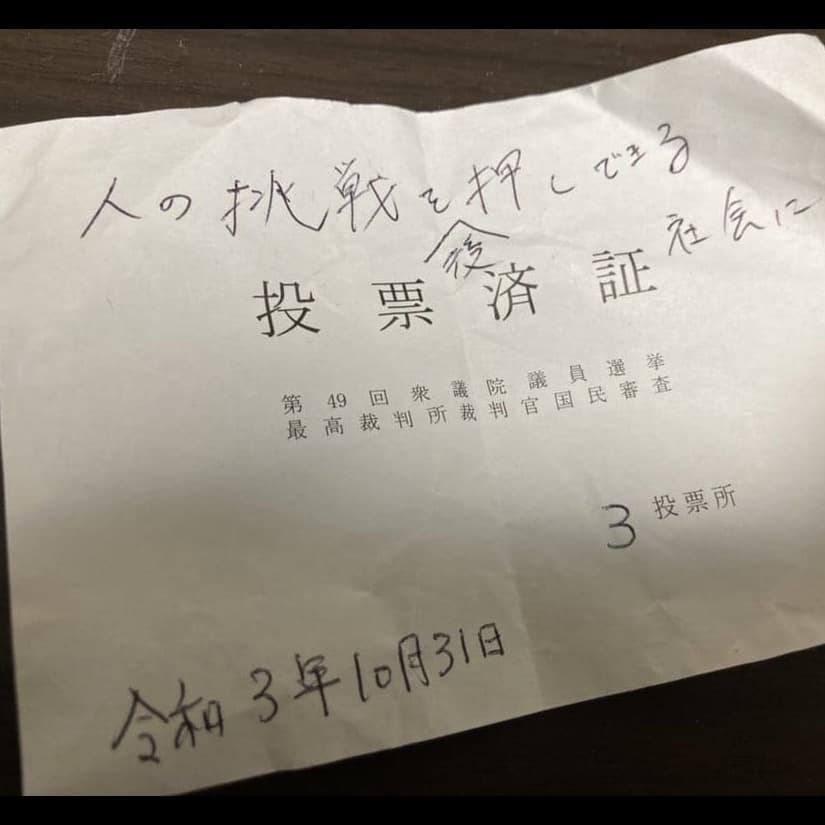 人の挑戦を後押しできる
社会に
投票済証
第49回衆議院議員選挙
最高裁判所裁判官国民審査
3 投票所
令和3年10月31日